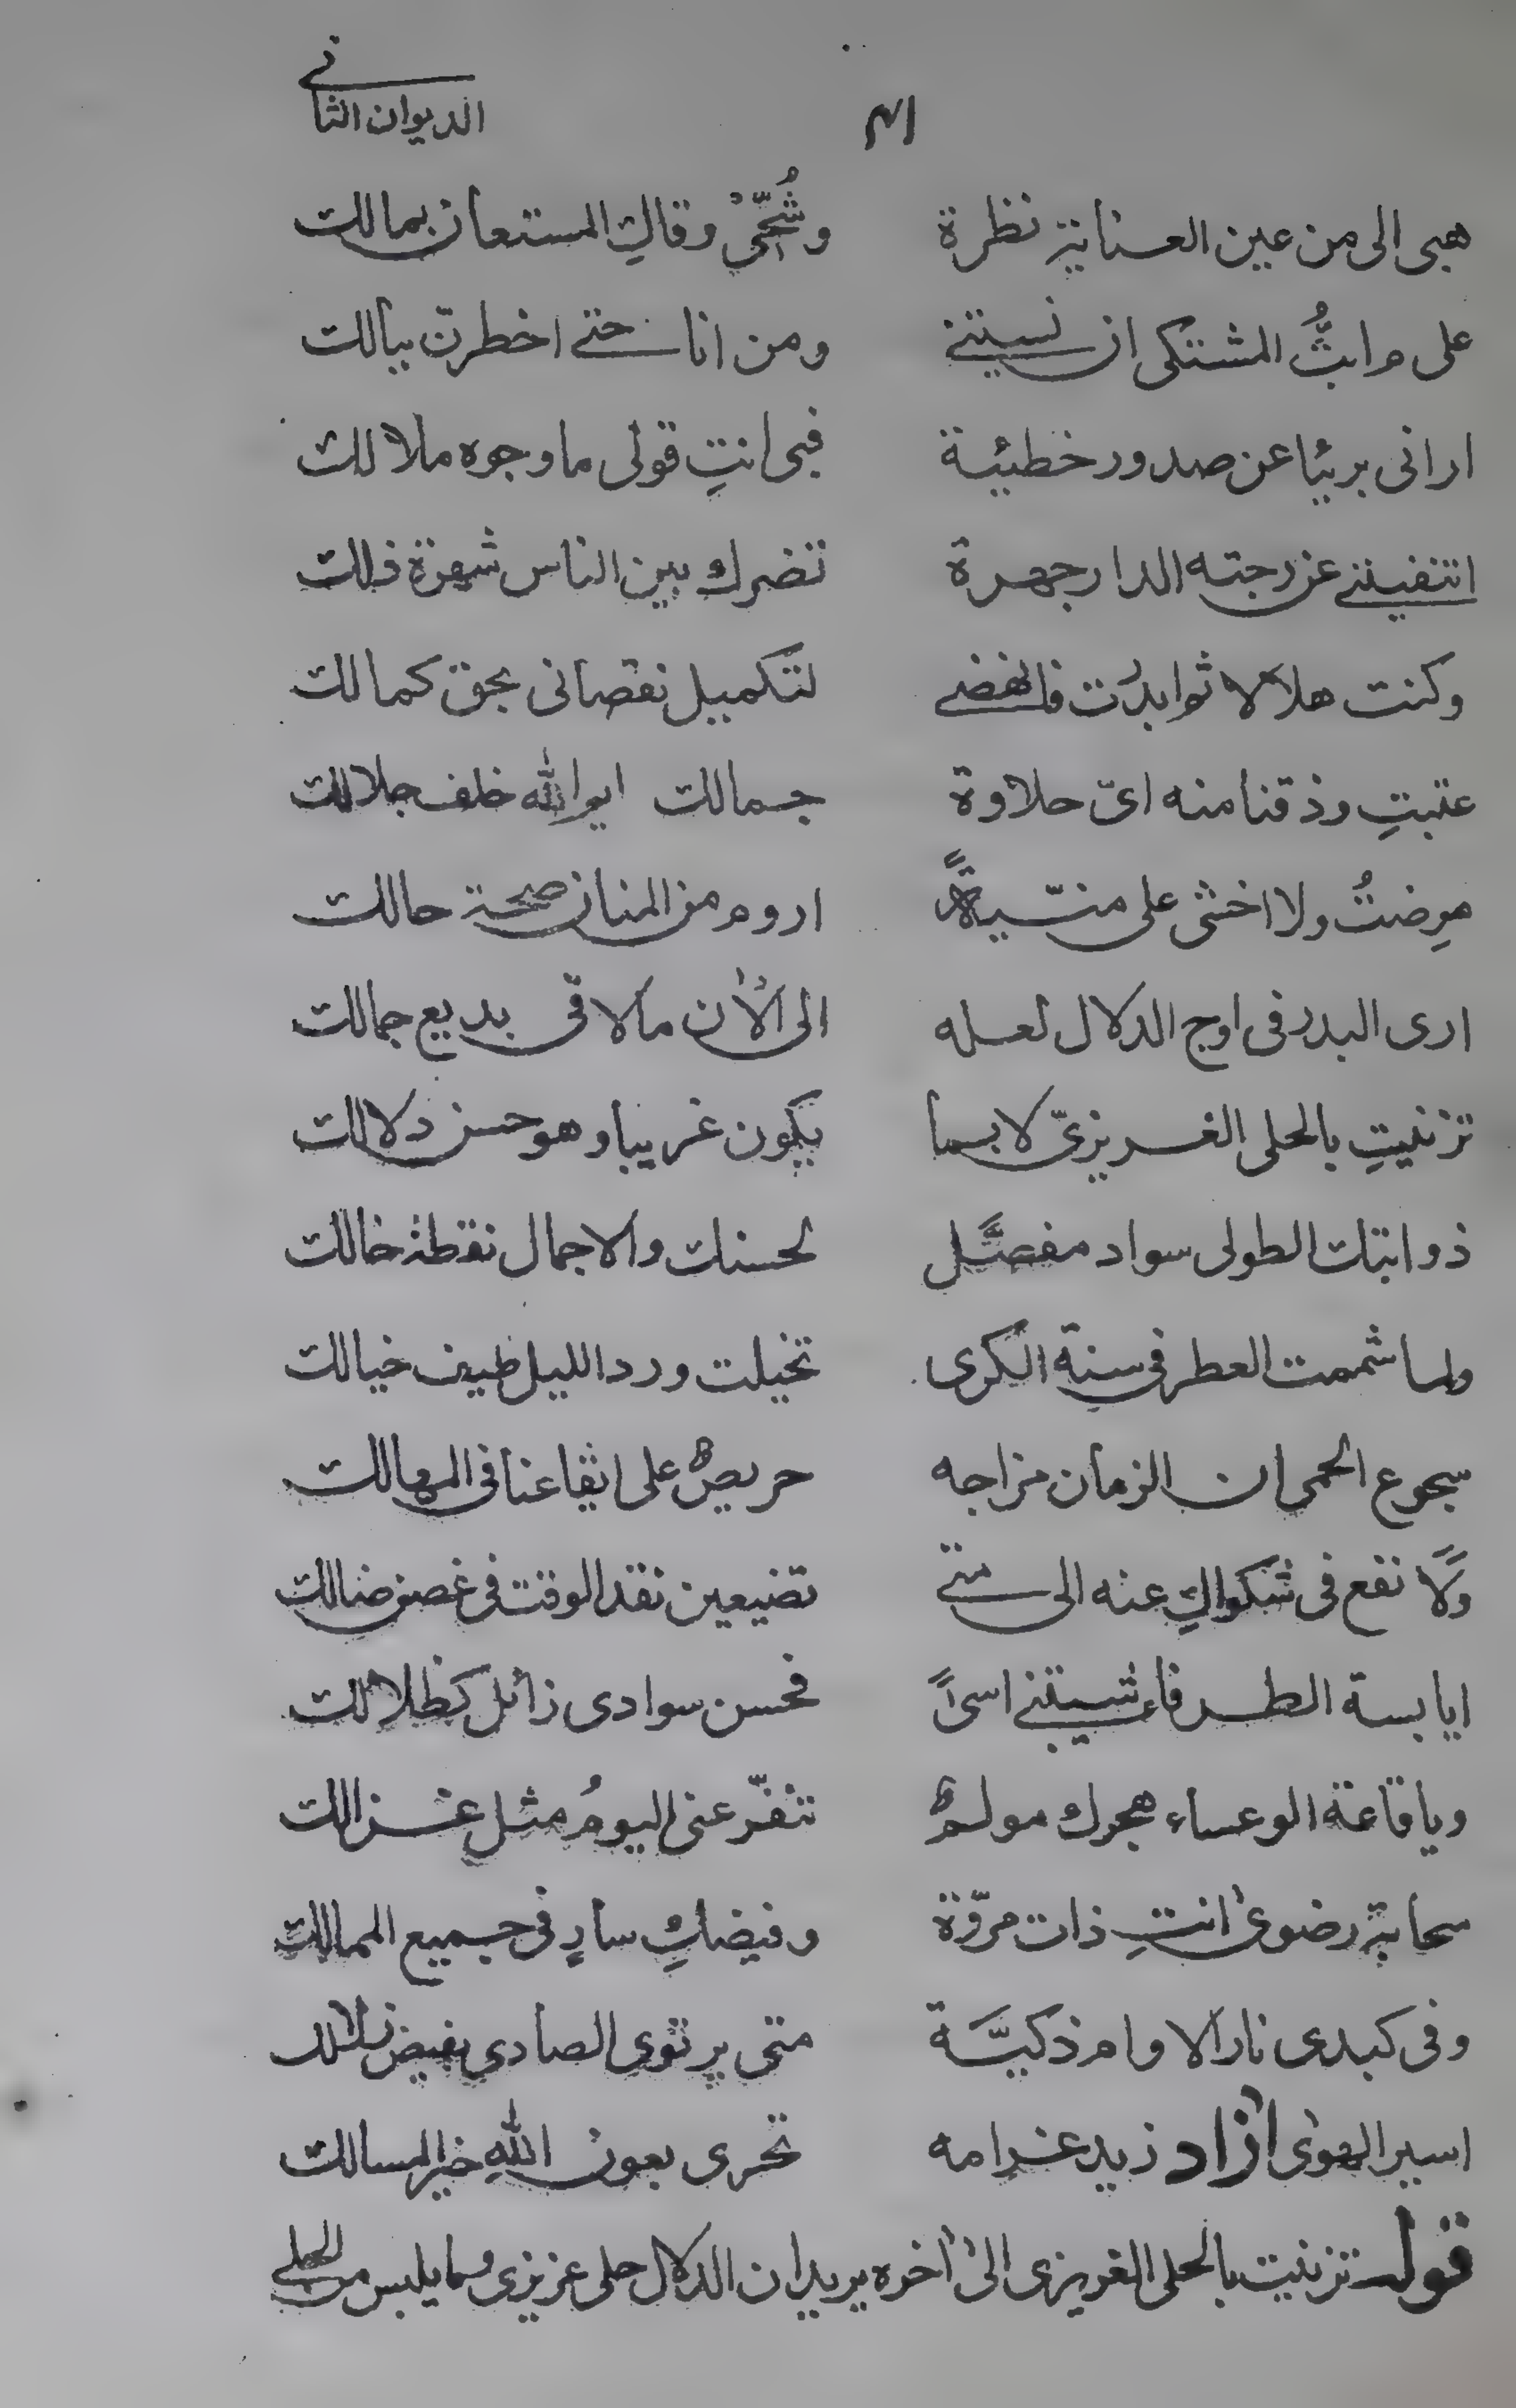 الديوان الثاني
هبى الى من عين العناية نظرة وشُحّى وقاكِ المستعان بمالك
على م ابثُّ المشتكى ان نسيتنى ومن انا حتى اخطرنّ ببالك
ارانى بريئا عن صدور خطيئة فبى انتِ قولى ما وجوه ملالك
اتنفيننى عن رجته الدار جهرة تضرك بين الناس شهرة ذلك
وكنت هلالا ثم ابدرت فانهضى لتكميل نقصانى بحق كمالك
عتبتِ وذقنا منه اىّ حلاوة جمالك ايم الله خلف جلالك
مرضتُ ولا اخشى على منيّةً اروم من المنان صحة حالك
ارى البدر فى اوج الدلال لعله الى الآن ما لاقى بديع جمالك
تزنيتِ بالحلى الغريزىّ لا بما يكون غريبا وهو حسن دلالك
ذوابتك الطولى سواد مفصَّل لحسنك والاجمال نقطة خالك
ولما شممت العطر فى سنة الكرى تخيلت ورد الليل طيف خيالك
سجوع الحمى ان الزمان مزاجه حريص على ايقاعنا فى المهالك
ولا نفع فى شكواكِ عنه الى متى تضيعين نقد الوقت فى غصن ضالك
ايا بسة الطرفاء شيبتنى اسىً فحسن سوادى زائل كظلالك
ويا قاعة الوعساء هجرك مولم تنفّر عنى اليوم مثل غزالك
سحابة رضوى انتِ ذات مروّة وفيضكِ سارٍ فى جميع الممالك
وفى كبدى نار الاوام ذكيَّة متى يرتوى الصادى بفيض زلالك
اسير الهوى آزاد زيد غرامه تحرى بعون اللهِ خير المسالك
قوله تزنيت بالحلى الغريزى الى آخره يريد ان الدلال حلى عزيزى وما يلبس من الحلى